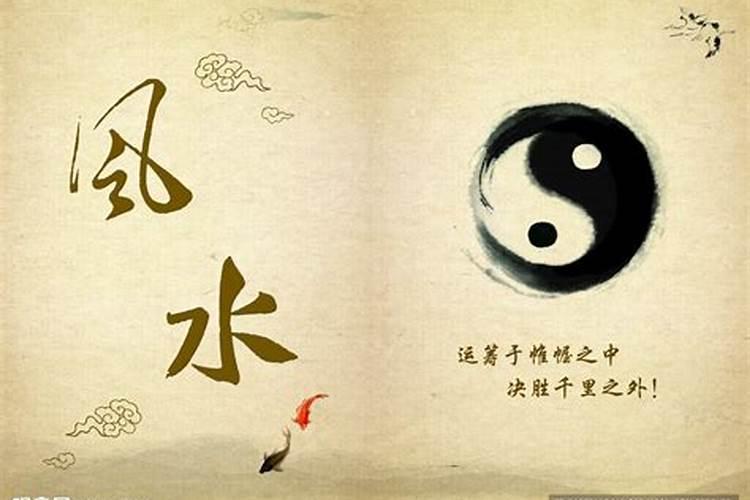 風
水
运筹于帷幄之中
决胜千里之外！